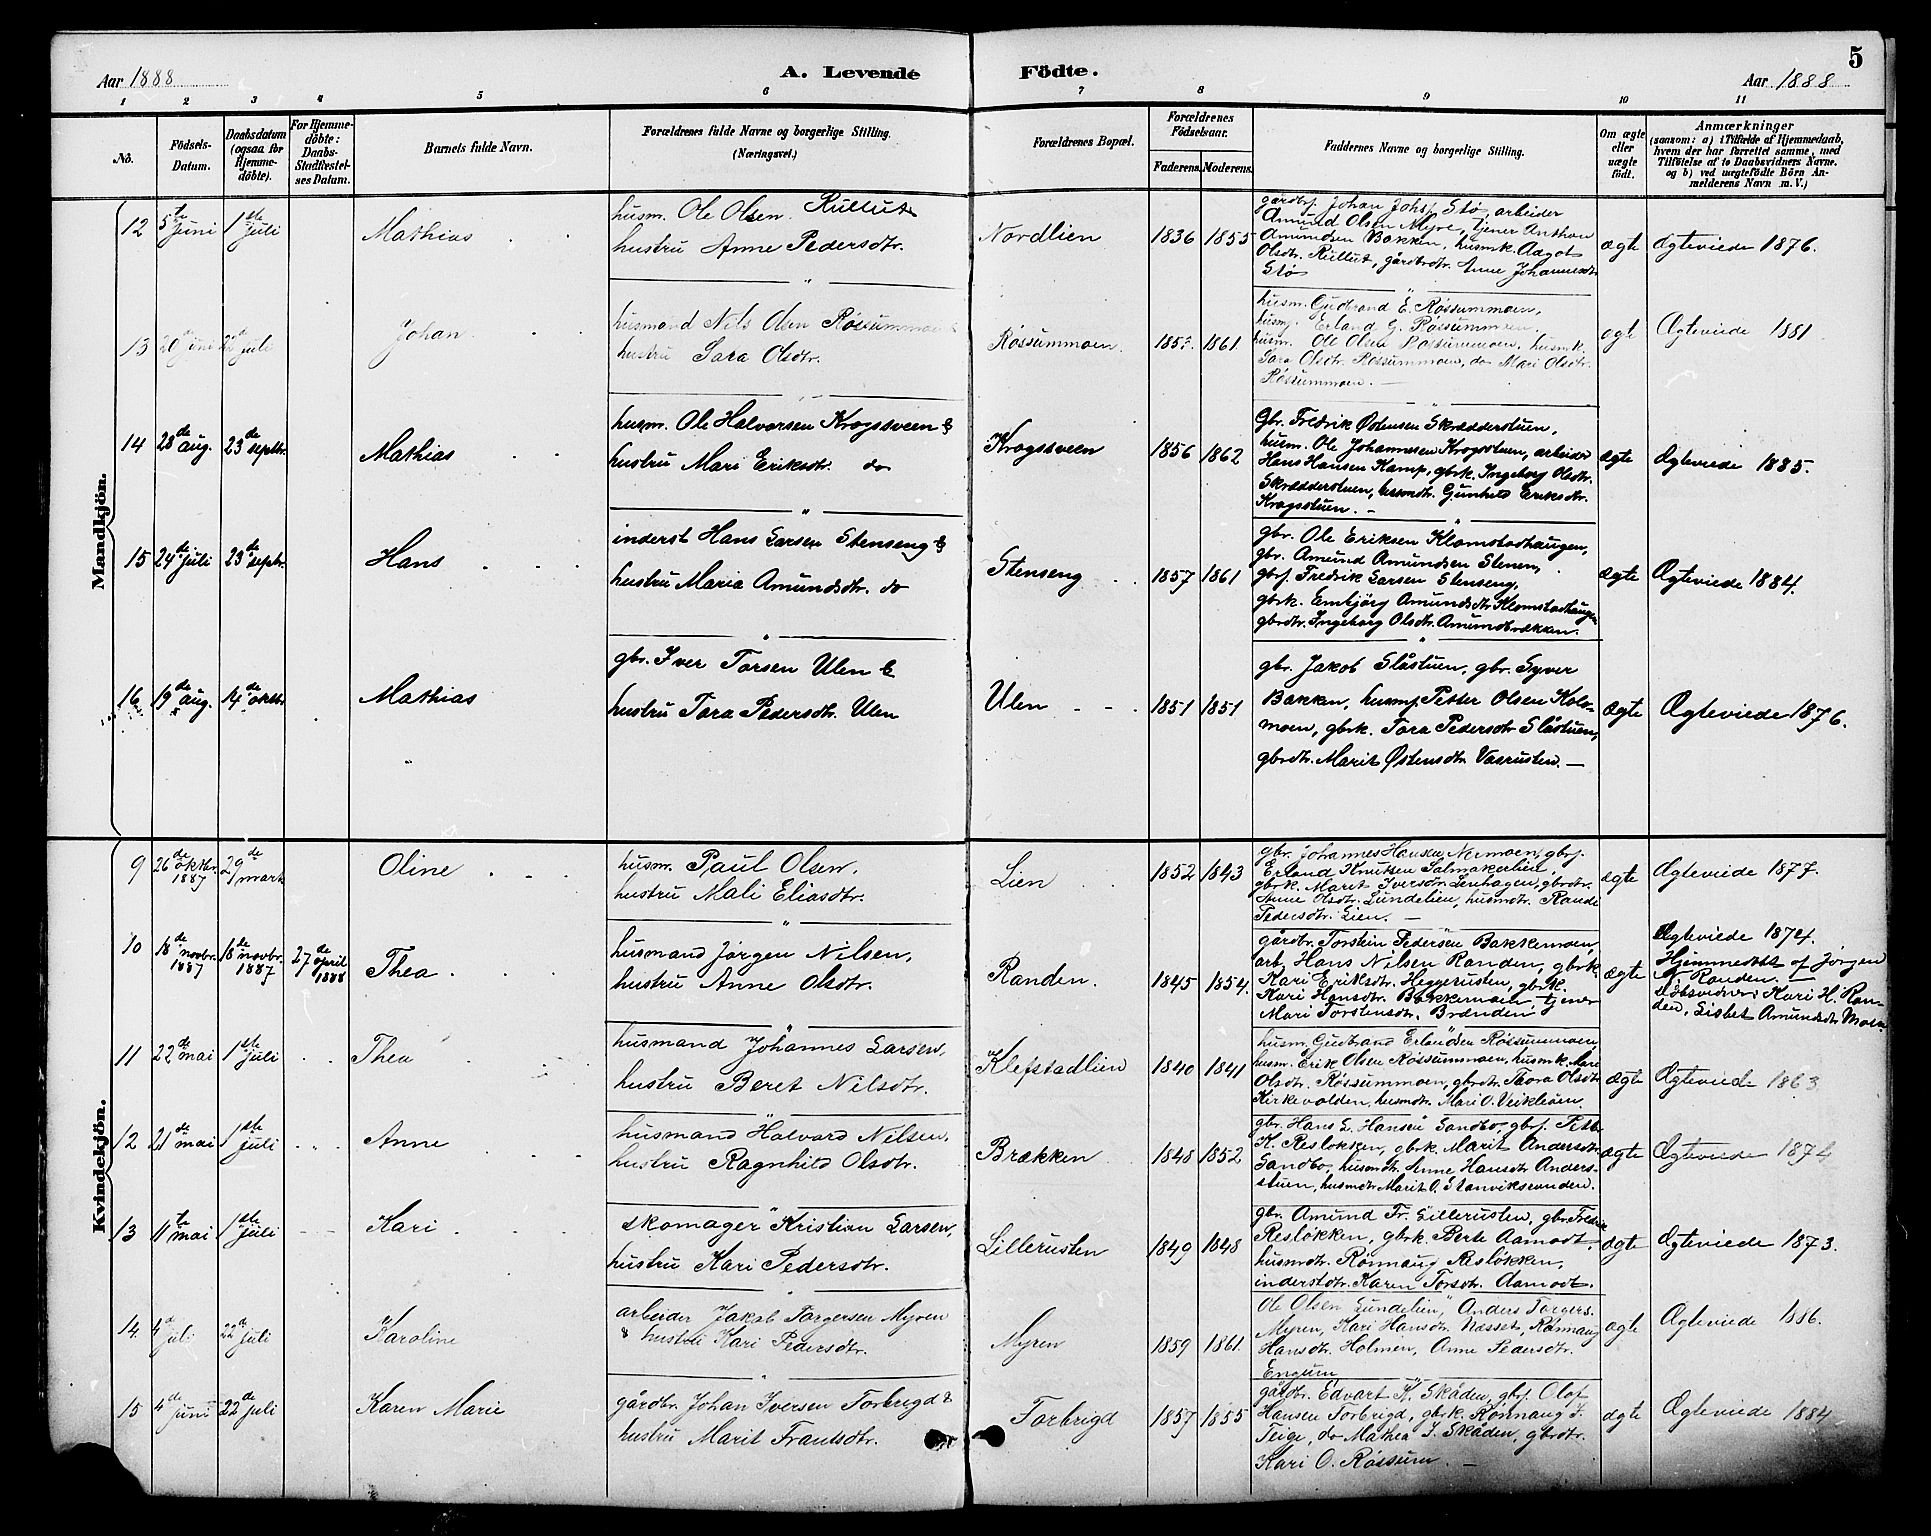 5
Aar 1888
A. Levende Födte.
Aar 1888
1 2 3 4 5 6 7 8 9 10 11
No.
Födsels-
Datum.
Daabsdatum
(ogsaa for
Hjemme-
döbte).
For Hjemme-
döbte:
Daabs-
Stadfestel-
ses Datum.
Barnets fulde Navn.
Forældrenes fulde Navne og borgerlige Stilling.
(Næringsvei.)
Forældrenes Bopæl.
Forældrenes
Födselsaar.
Faderens. Moderens.
Faddernes Navne og borgerlige Stilling.
Om ægte
eller
uægte
födt.
Anmærkninger
(saasom: a) i Tilfælde af Hjemmedaab,
hvem der har forrettet samme, med
Tilföielse af to Daabsvidners Navne.
og b) ved uægtefödte Börn An-
melderens Navn m. V.)
Mandkjön.
12 5te juni 1ste juli
Mathias
husm. Ole Olsen Rullut
hustru Anne Pedersdtr.
Nordlien
1836 1855
gårdbr. Johan Johs. Stø, arbeider
Amund Olsen Myre, tjener Anthon
Amundsen Bakken, husmk. Aagot
Olsdtr. Rullut, gårdbrdtr. Anne Johannesdtr
Stø
ægte
Ægteviede 1876.
13 20de juni 22de juli
Johan
husmand Nils Olsen Røssummoen &
hustru Sara Olsdtr.
Røssummoen.
1861
husm. Gudbrand E. Røssummoen,
husm. Erland G. Røssummoen,
husm. Ole Olsen Røssummoen, husmk.
Sara Olsdtr. Røssummoen, do Mari Olsdtr.
Røssummoen. —
ægte
Ægteviede 1881
14 28de aug. 23de septbr.
Mathias
husm. Ole Halvorsen Krogssveen &
hustru Mari Eriksdtr. do
Krogssveen
1856 1862
Gbr. Fredrik Østensen Skrædderstuen,
husm. Ole Johannesen Krogsstuen, arbeider
Hans Hansen Kamp, gbrk. Ingeborg Olsdtr.
Skrædderstuen, husmdtr. Gunhild Eriksdtr.
Krogsstuen. —
ægte
Ægteviede 1885.
15 24de juli 23de septbr.
Hans
inderst Hans Larsen Stenseng &
hustru Maria Amundsdtr. do
Stenseng
1857 1861
gbr. Ole Eriksen Klomstadhaugen,
gbr. Amund Amundsen Stenen,
gbrf. Fredrik Larsen Stenseng,
gbrk. Embjørg Amundsdtr Klomstadhaugen
gbrdtr. Ingeborg Olsdtr. Amundbrækken.
ægte
Ægteviede 1884.
16 19de aug. 14de oktbr
Mathias
gbr. Iver Torsen Ulen &
hustru Tora Pedersdtr. Ulen
Ulen
1851 1851
gbr. Jakob Slåstuen, gbr. Syver
Bakken, husmf. Petter Olsen Kols-
moen, gbrk. Tora Pedersdtr Slåstuen,
gbrdtr. Marit Østensdtr. Vasrusten. —
ægte
Ægteviede 1876.
Kvindekjön.
9 26de oktbr. 1887 29de marts
Oline
husm. Paul Olsen,
hustru Mali Eliasdtr.
Lien
1852 1843
gbr. Johannes Hansen Nermoen, gbrf.
Erland Knutsen Salmakerlien,
gbrk. Marit Iversdtr. Lenhagen, gbrdtr.
Anne Olsdtr. Lundelien, husmdtr. Randi
Pedersdtr. Lien. —
ægte
Ægteviede 1877.
10 18de novbr. 1887 18de novbr. 1887 27de april 1888
Thea
husmand Jørgen Nilsen,
hustru Anne Olsdtr.
Randen.
1845 1854.
gårdbr. Torstein Pedersen Bakkemoen,
arb. Hans Nilsen Randen, gbrk.
Kari Eriksdtr. Heggerusten, gbrk.
Kari Hansdtr. Bakkemoen, tjener
Mari Torstensdtr. Brænden
ægte
Ægteviede 1874.
Hjemmedöbt af Jørgen
N. Randen. —
Döbsvidner: Kari H. Ran-
den, Lisbet Amundsdtr Moen
11 22de mai 1ste juli
Thea
husmand Johannes Larsen,
hustru Beret Nilsdtr.
Klefstadlien
1840 1841
husm. Gudbrand Erlandsen Røssummoen,
husm. Erik Olsen Røssummoen, husmk. Mari
Olsdtr. Røssummoen, gbrdtr. Thora Olsdtr
Kirkevolden, husmdtr. Mari O. Veikleøen.
ægte
Ægteviede 1863
12 21de mai 1ste juli
Anne
husmand Halvard Nilsen,
hustru Ragnhild Olsdtr.
Brækken
1848 1852
gbr. Hans L. Hansen Sandbo, gbrf. Pett.
K. Resløkken, gbrk. Marit Andersdtr
Sandbo, husmdtr. Anne Hansdtr Anders-
stuen, husmdtr Marit O. Stanviksranden.
ægte
Ægteviede 1874
13 11te mai 1ste juli
Kari
skomager Kristian Larsen,
hustru Kari Pedersdtr.
Lillerusten
1849 1848
gbr. Amund Fr. Lillerusten, gbr. Fredrik
Resløkken, gbrk. Berte Aamodt,
husmdtr. Rønnaug Resløkken,
inderstdtr. Karen Torsdtr. Aamodt.
ægte
Ægteviede 1873.
14 4de juli 22de juli
Karoline
arbeider Jakob Torgersen Myren
& hustru Kari Pedersdtr.
Myren
1859 1861.
Ole Olsen Lundelien, Anders Torgers.
Myren, Kari Hansdtr. Næsset, Rønnaug
Hansdtr. Holmen, Anne Pedersdtr.
Engum
ægte
Ægteviede 1886.
15 4de juni 22de juli
Karen Marie
gårdbr. Johan Iversen Torbrigd &
hustru Marit Frantsdtr.
Torbrigd
1857 1855
gårdbr. Edvart K. Skåden, gbrf. Olof
Hansen Torbrigd, gbrk. Rønnaug J.
Teige, do Mathea J. Skåden, gbrdtr.
Kari O. Røssum. —
ægte
Ægteviede 1884